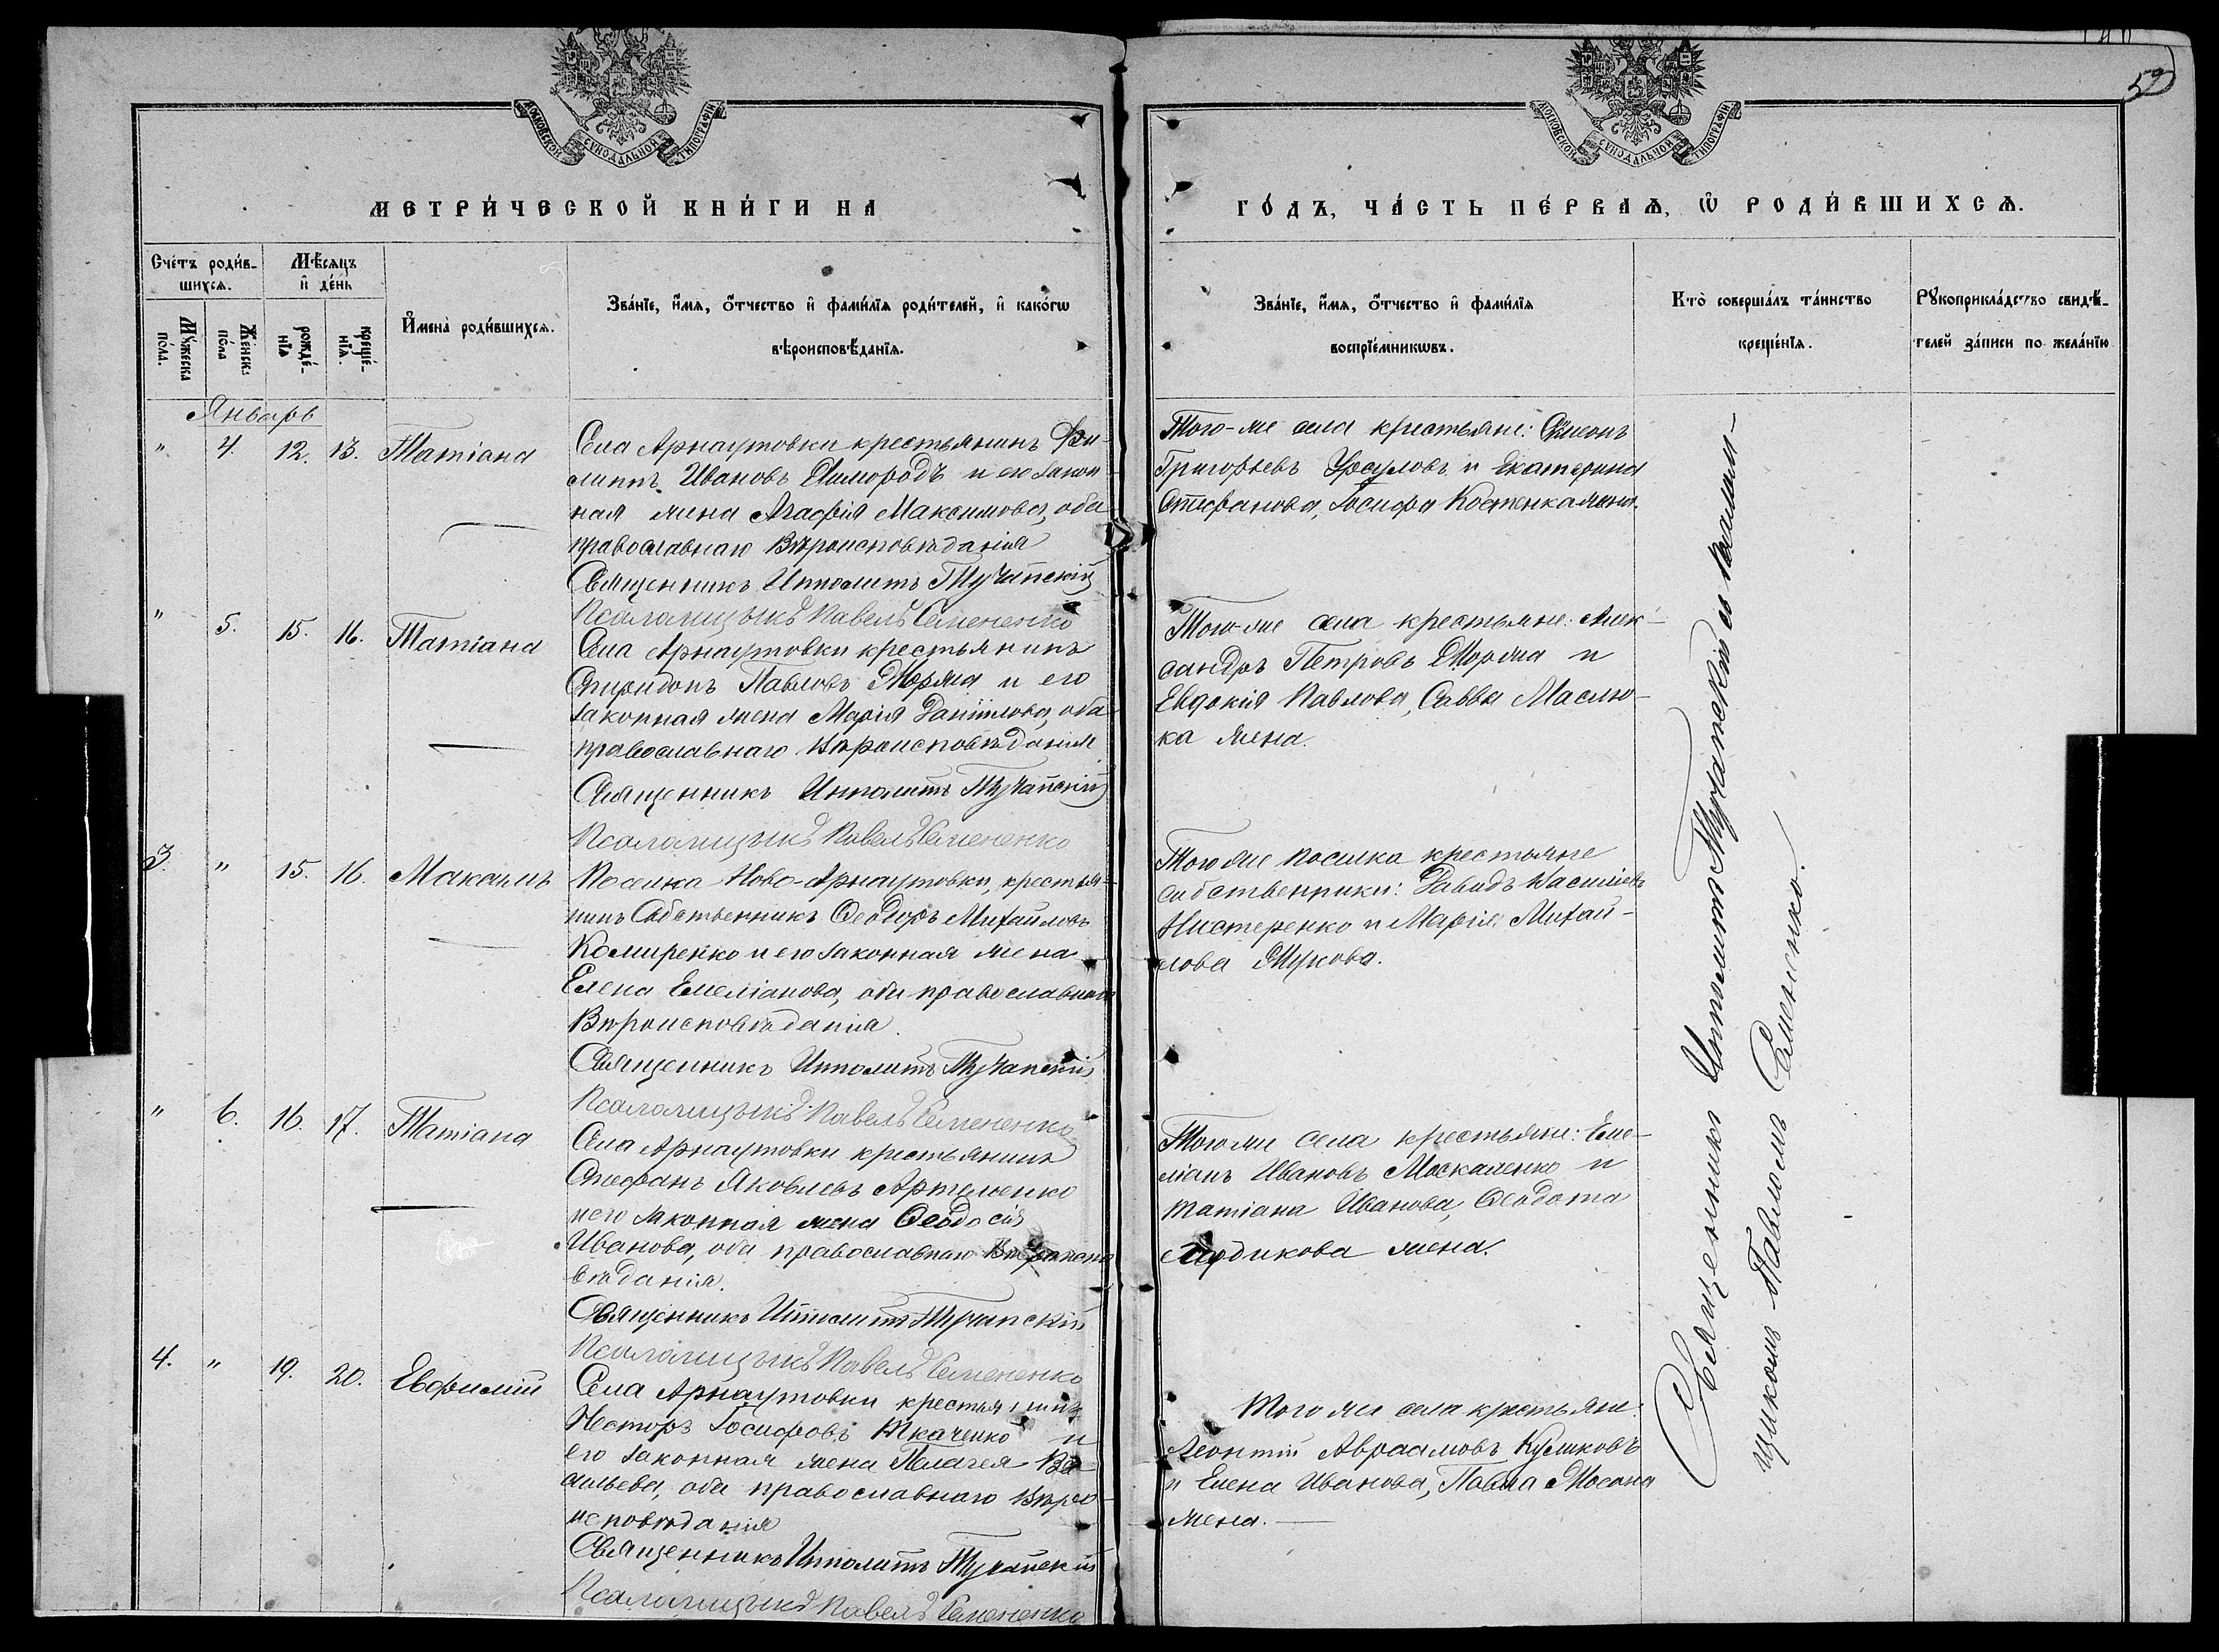 59
МОСКОВСКОЙ СУНОДАЛЬНОЙ ТИПОГРАФІИ
МОСКОВСКОЙ СУНОДАЛЬНОЙ ТИПОГРАФІИ
МЕТРИ́ЧЕСКОЙ КНИ́ГИ НА
ГО́ДЪ, ЧА́СТЬ ПЕ́РВАѦ, Ѽ РОДИ́ВШИХСѦ.
Сче́тъ роди́в-
шихсѧ.
Мꙋ́жеска
по́ла.
Же́нска
по́ла
Мѣ́сѧцъ
и҆ де́нь
рожде́-
нїѧ
креще́-
нїѧ.
И҆мена̀ роди́вшихсѧ.
Зва́нїе, и҆́мѧ, о҆́тчество и҆ фами́лїѧ роди́телей, и҆ како́гѡ
вѣроисповѣ́данїѧ.
Зва́нїе, и҆́мѧ, о҆́тчество и҆ фами́лїѧ
воспрїе́мникѡвъ.
Кто̀ соверша́лъ та́инство
креще́нїѧ.
Рꙋкоприкла́дство свидѣ́-
телей за́писи по жела́нїю
Январь
" 4. 12. 13. Татіана
Села Арнаутовки крестьянинъ Фи-
липпъ Ивановъ и его закон-
ная жена Агафія Максимова, оба
православнаго Вѣроисповѣданія
Священникъ Ипполитъ Тучапскій
Псаломщикъ Павелъ Семененко
Того-же села крестьяне: Симонъ
Григорьевъ Урсуловъ и Екатерина
Стефанова, Іосифа Костенка жена.
" 5. 15. 16. Татіана
Села Арнаутовки крестьянинъ
Спиридонъ Павловъ и его
законная жена Марія Даніилова, оба
православнаго Вѣроисповѣданія
Священникъ Ипполитъ Тучапскій
Псаломщикъ Павелъ Семененко
Того-же села крестьяне: Алек-
сандръ Петровъ и
Евдокія Павлова, Саввы Маслю-
ка жена.
3. " 15. 16. Максимъ
Поселка Ново-Арнаутовки, крестья-
нинъ Собственникъ Ѳеодоръ Михайловъ
и его законная жена
Елена Емеліанова, оба православнаго
Вѣроисповѣданія.
Священникъ Ипполитъ Тучапскій
Псаломщикъ Павелъ Семененко
Того же поселка крестьяне
собственники: Давидъ Василіевъ
Нистеренко и Марія Михай-
лова Жукова.
" 6. 16. 17. Татіана
Села Арнаутовки крестьянинъ
Стефанъ Яковлевъ Артеменко
и его законная жена Ѳеодосія
Иванова, оба православнаго Вѣроиспо
вѣданія.
Священникъ Ипполитъ Тучапскій
Псаломщикъ Павелъ Семененко
Того же села крестьяне: Еме-
ліанъ Ивановъ Москаленко и
Татіана Иванова, Ѳеодота
жена.
4. " 19. 20. Евфимій
Села Арнаутовки крестьянинъ
Несторъ Іосифовъ Ткаченко и
его законная жена Пелагея Ва-
сильева, оба православнаго Вѣро-
исповѣданія
Священникъ Ипполитъ Тучапскій
Псаломщикъ Павелъ Семененко
Того же села крестьяне:
Леонтій Авраамовъ Куликовъ
и Елена Иванова, Павла
жена.
Священникъ Ипполитъ Тучапскій съ Псалом-
щикомъ Павломъ Семененко.